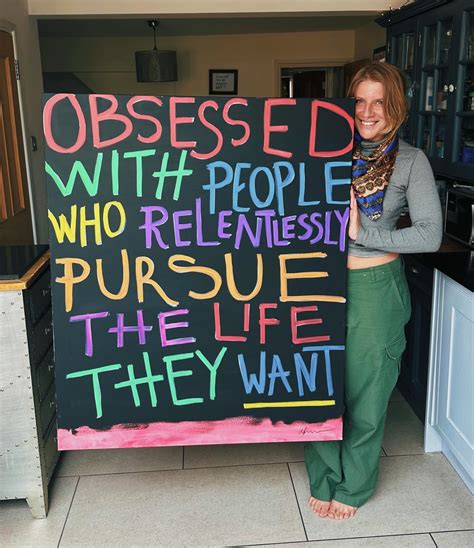 OBSESSED
WITH PEOPLE
WHO RELENTLESSLY
PURSUE
THE LIFE
THEY WANT